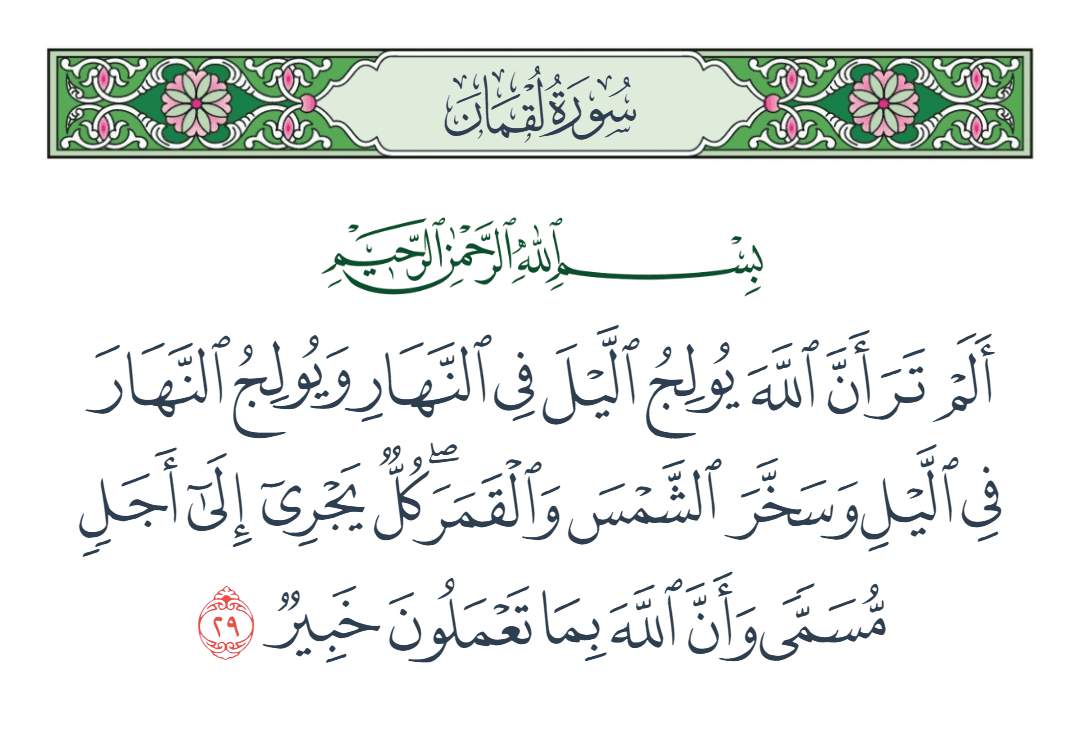 سُورَةُ لُقۡمَانَ
بِسۡمِ ٱللَّهِ ٱلرَّحۡمَٰنِ ٱلرَّحِيمِ
أَلَمۡ تَرَ أَنَّ ٱللَّهَ يُولِجُ ٱلَّيۡلَ فِي ٱلنَّهَارِ وَيُولِجُ ٱلنَّهَارَ
فِي ٱلَّيۡلِ وَسَخَّرَ ٱلشَّمۡسَ وَٱلۡقَمَرَۖ كُلّٞ يَجۡرِيٓ إِلَىٰٓ أَجَلٖ
مُّسَمّٗى وَأَنَّ ٱللَّهَ بِمَا تَعۡمَلُونَ خَبِيرٞ ٢٩